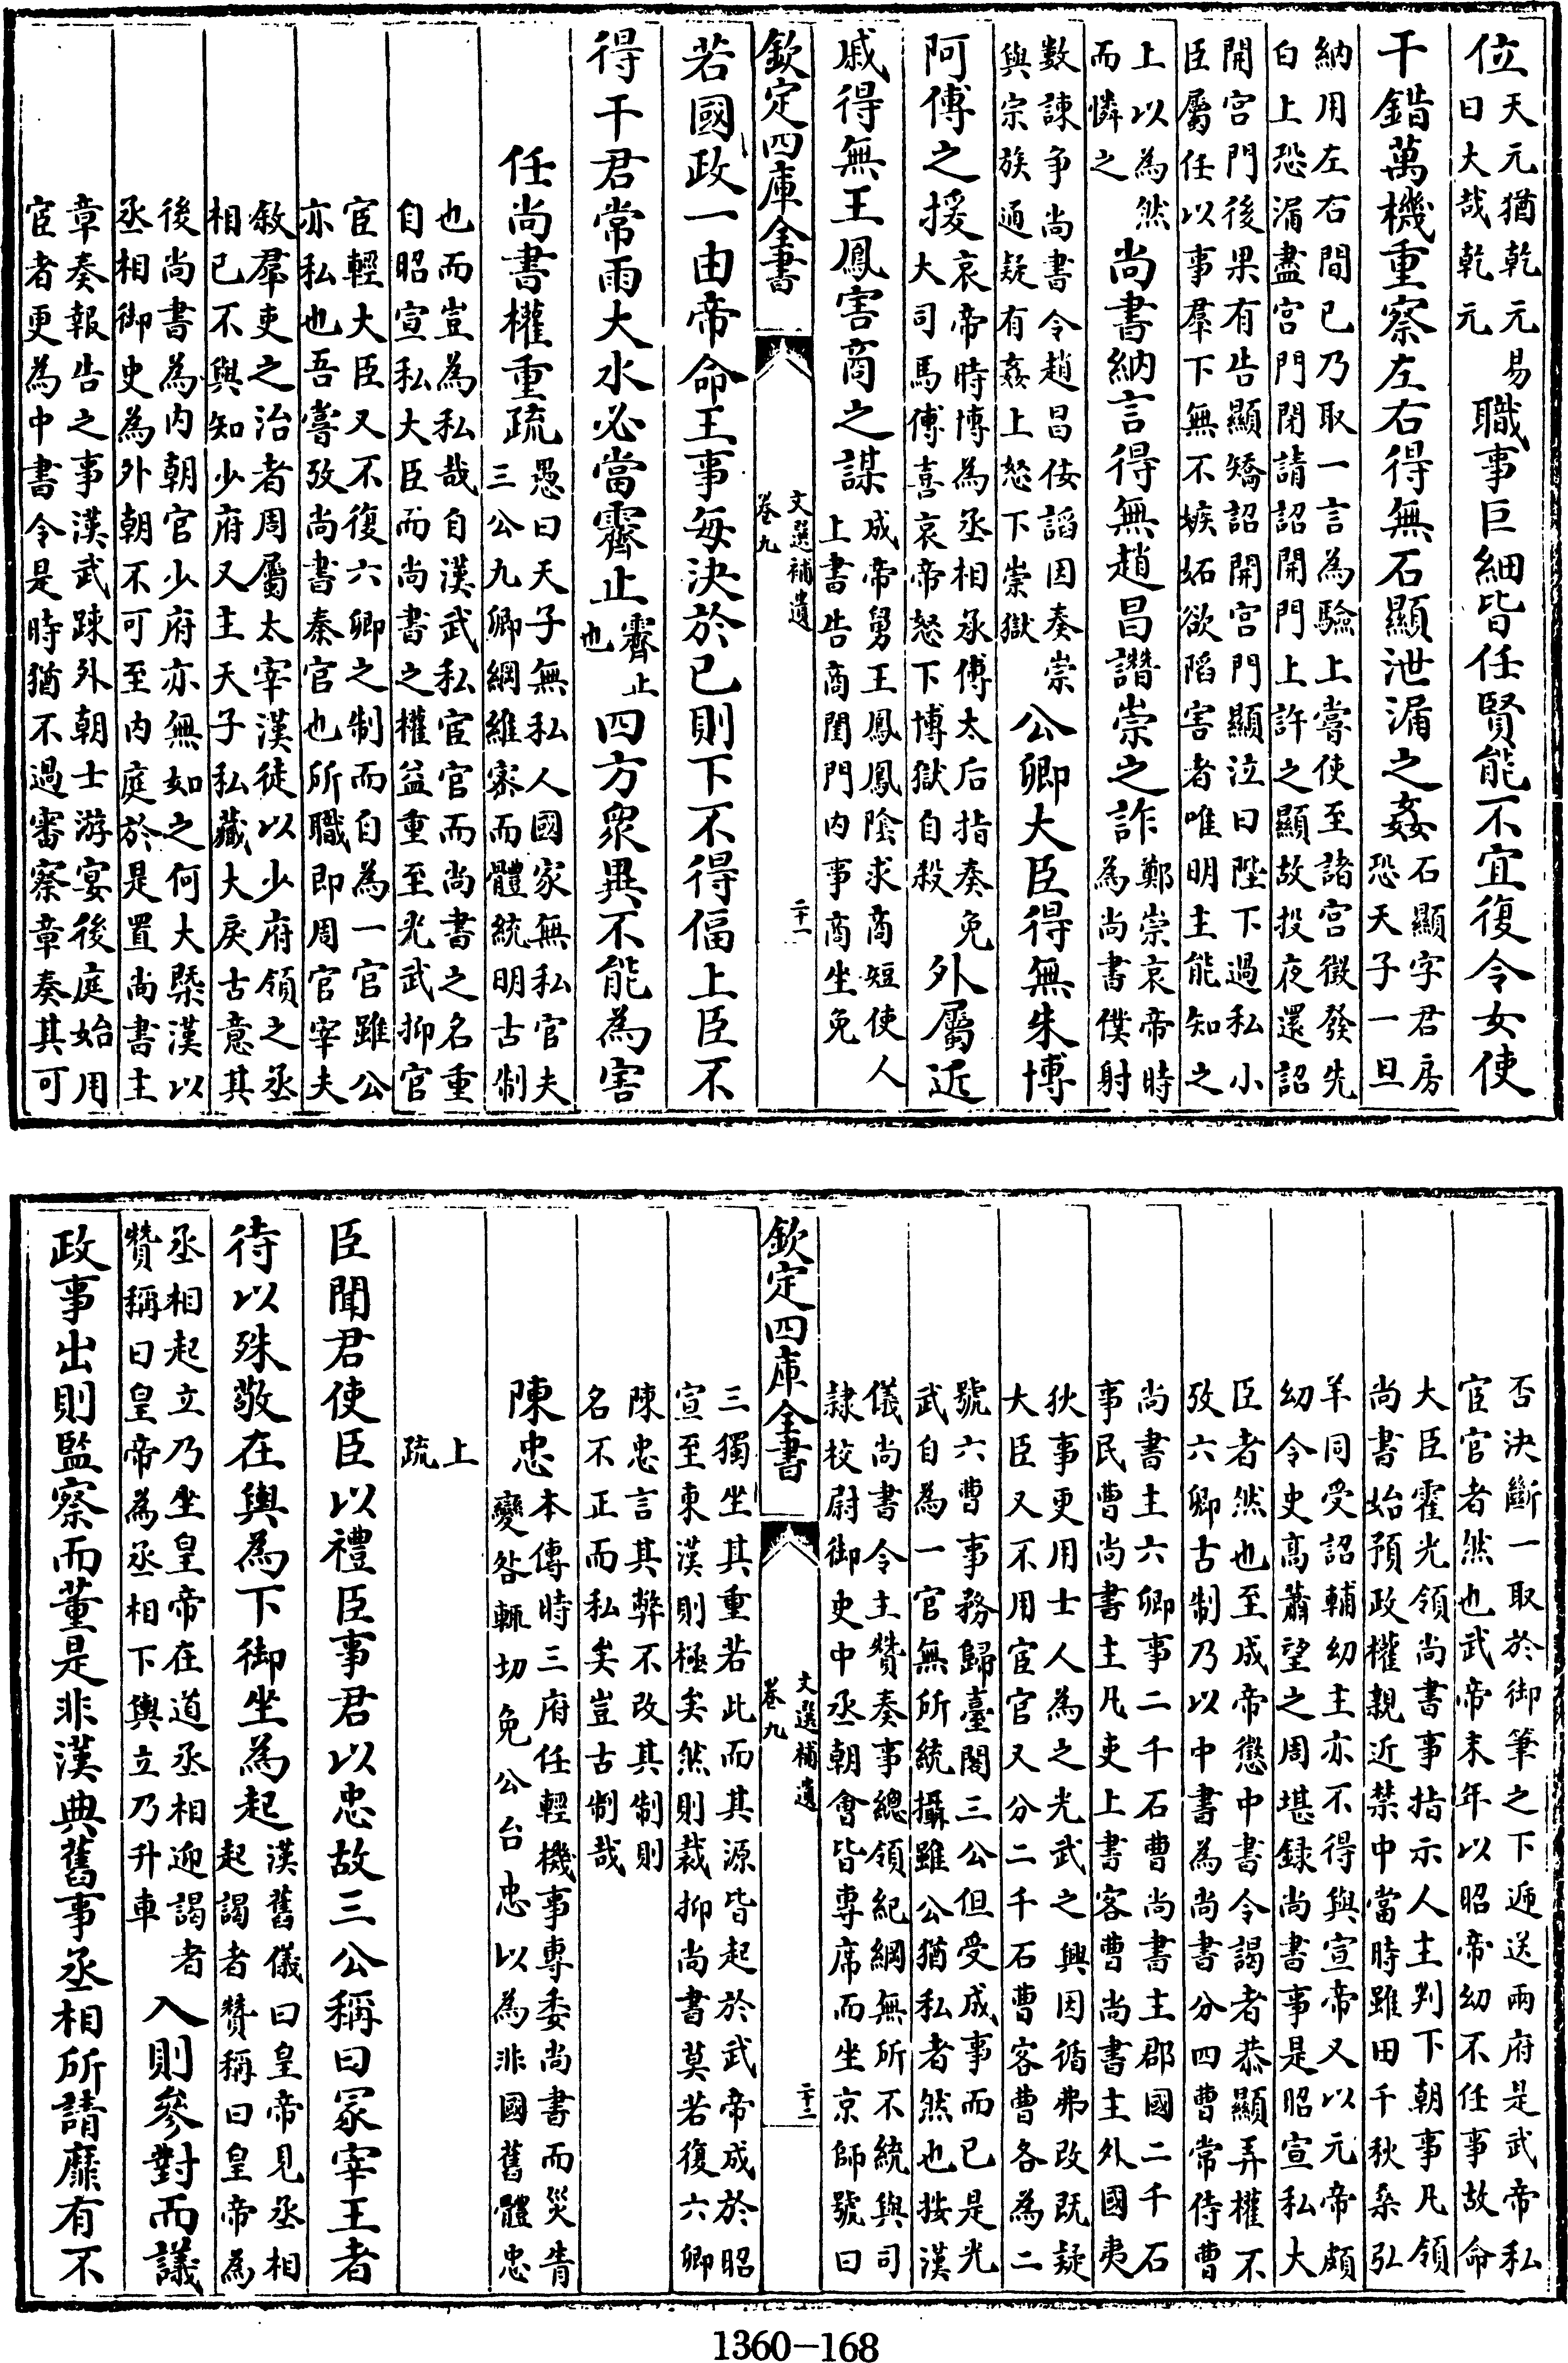 位天元猶乾元易曰大哉乾元職事巨細皆任賢能不宜復令女使
干錯萬機重察左右得無石顯泄漏之姦石顯字君房恐天子一旦
納用左右間已乃取一言為驗上嘗使至諸宮徴發先
白上恐漏盡宮門閉請詔開門上許之顯故投夜還詔
開宮門後果有告顯矯詔開宮門顯泣曰陛下過私小
臣屬任以事羣下無不嫉妬欲陷害者唯明主能知之
上以為然而憐之尚書納言得無趙昌譖崇之詐鄭崇哀帝時為尚書僕射
數諫争尚書令趙昌佞謟因奏崇與宗族通疑有姦上怒下崇獄公卿大臣得無朱博
阿傅之援哀帝時博為丞相承傅太后指奏免大司馬傅喜哀帝怒下博獄自殺外屬近
戚得無王鳳害商之謀成帝舅王鳳鳳陰求商短使人上書告商閨門内事商坐免
欽定四庫全書
文選補遺
卷九
二十一
若國政一由帝命王事每決於已則下不得偪上臣不
得干君常雨大水必當霽止霽止也四方衆異不能為害
任尚書權重疏愚曰天子無私人國家無私官夫三公九卿綱維家而體統明古制
也而豈為私哉自漢武私宦官而尚書之名重
自昭宣私大臣而尚書之權益重至光武抑官
宦輕大臣又不復六卿之制而自為一官雖公
亦私也吾嘗攷尚書秦官也所職即周官宰夫
敘羣吏之治者周屬太宰漢徒以少府領之丞
相已不與知少府又主天子私藏大戾古意其
後尚書為内朝官少府亦無如之何大槩漢以
丞相御史為外朝不可至内庭於是置尚書主
章奏報告之事漢武踈外朝士游宴後庭始用
宦者更為中書令是時猶不過審察章奏其可
否決斷一取於御筆之下逓送兩府是武帝私
宦官者然也武帝末年以昭帝幼不任事故命
大臣霍光領尚書事指示人主判下朝事凡領
尚書始預政權親近禁中當時雖田千秋桑弘
羊同受詔輔幼主亦不得與宣帝又以元帝頗
幼令史高蕭望之周堪録尚書事是昭宣私大
臣者然也至成帝懲中書令謁者恭顯弄權不
攷六卿古制乃以中書為尚書分四曹常侍曹
尚書主六卿事二千石曹尚書主郡國二千石
事民曹尚書主凡吏上書客曹尚書主外國夷
狄事更用士人為之光武之興因循弗改既疑
大臣又不用宦官又分二千石曹客曹各為二
號六曹事務歸臺閣三公但受成事而已是光
武自為一官無所統攝雖公猶私者然也按漢
儀尚書令主贊奏事總領紀綱無所不統與司
隷校尉御史中丞朝會皆專席而坐京師號曰
欽定四庫全書
文選補遺
卷九
二十二
三獨坐其重若此而其源皆起於武帝成於昭
宣至東漢則極矣然則裁抑尚書莫若復六卿
陳忠言其弊不改其制則
名不正而私矣豈古制哉
陳忠本傳時三府任輕機事專委尚書而災眚變咎輒切免公台忠以為非國舊體忠
上
疏
臣聞君使臣以禮臣事君以忠故三公稱曰冢宰王者
待以殊敬在輿為下御坐為起漢舊儀曰皇帝見丞相起謁者贊稱曰皇帝為
丞相起立乃坐皇帝在道丞相迎謁者贊稱曰皇帝為丞相下輿立乃升車入則參對而議
政事出則監察而董是非漢典舊事丞相所請靡有不
1360-168